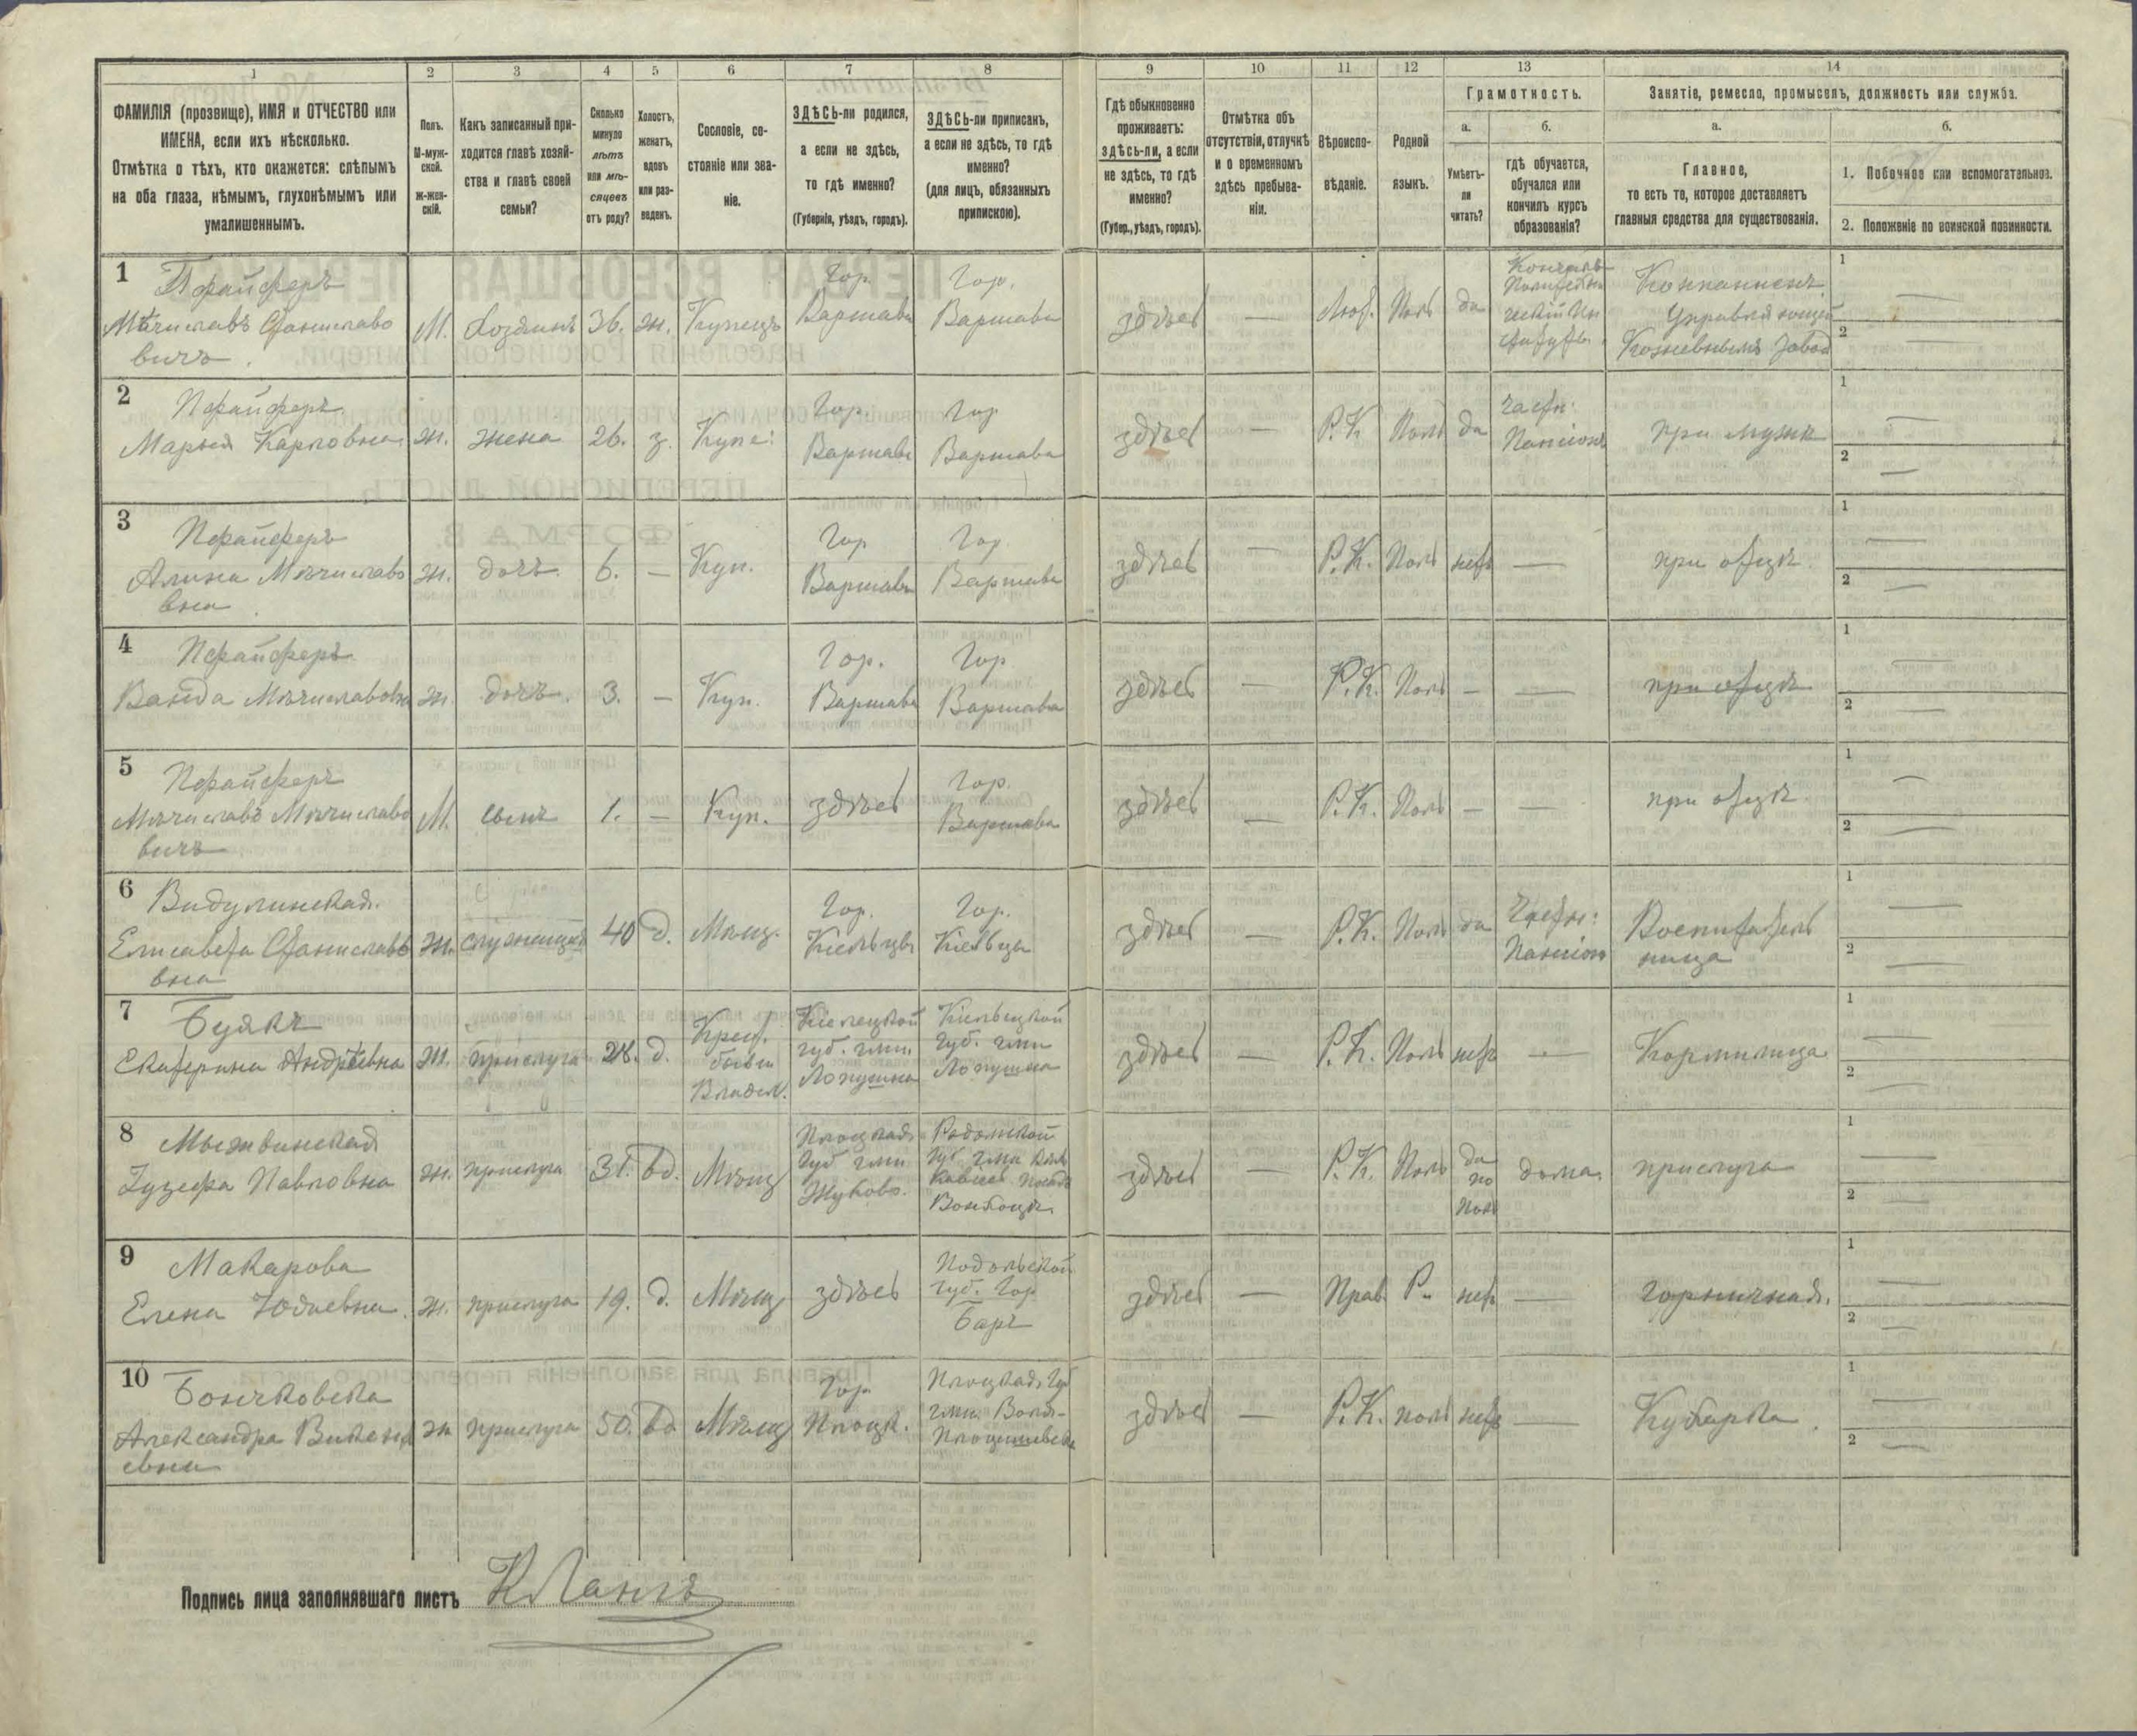 1
2
3
4
5
6
7
8
9
10
11
12
13
14
ФАМИЛІЯ (прозвище), ИМЯ и ОТЧЕСТВО или
ИМЕНА, если ихъ нѣсколько.
Отмѣтка о тѣхъ, кто окажется: слѣпымъ
на оба глаза, нѣмымъ, глухонѣмымъ или
умалишеннымъ.
Полъ.
М-муж-
ской.
Ж-жен-
скій.
Какъ записанный при-
ходится главѣ хозяй-
ства и главѣ своей
семьи?
Сколько
минуло
лѣтъ
или мѣ-
сяцевъ
отъ роду?
Холостъ,
женатъ,
вдовъ
или раз-
веденъ.
Сословіе, со-
стояніе или зва-
ніе.
ЗДѢСЬ-ли родился,
а если не здѣсь,
то гдѣ именно?
(Губернія, уѣздъ, городъ).
ЗДѢСЬ-ли приписанъ,
а если не здѣсь, то гдѣ
именно?
(для лицъ, обязанныхъ
припискою).
Гдѣ обыкновенно
проживаетъ:
здѣсь-ли, а если
не здѣсь, то гдѣ
именно?
(Губер., уѣздъ, городъ).
Отмѣтка объ
отсутствіи, отлучкѣ
и о временномъ
здѣсь пребыва-
ніи.
Вѣроиспо-
вѣданіе.
Родной
языкъ.
Грамотность.
а.
Умѣетъ-
ли
читать?
б.
гдѣ обучается,
обучался или
кончилъ курсъ
образованія?
Занятіе, ремесло, промыселъ, должность или служба.
а.
Главное,
то есть то, которое доставляетъ
главныя средства для существованія.
б.
1. Побочное или вспомогательное.
2. Положеніе по воинской повинности.
1 Пфайферъ
Мѣчиславъ Станиславо
вичъ.
М. Хозяинъ 36. ж. Купецъ
Гор. Варшава
Гор. Варшава
здѣсь — Лют. Поль да
Компаніонъ
Управляющій
Кожевнымъ Завод
1 —
2 —
2 Пфайферъ
Марья Карловна
ж. жена 26. з. Купе:
Гор. Варшава
Гор Варшава
здѣсь — Р.К Поль да
Частн:
Пансіонъ
при мужѣ
1 —
2 —
3 Пфайферъ
Алина Мѣчиславо
вна.
ж. дочь. 6. — Куп.
Гор Варшава
Гор. Варшава
здѣсь — Р.К. Поль нетъ —
при отцѣ.
1 —
2 —
4 Пфайферъ
Ванда Мѣчиславовна
ж. дочь. 3. — Куп.
Гор. Варшава
Гор. Варшава
здѣсь — Р.К. Поль — —
при отцѣ
1 —
2 —
5 Пфайферъ
Мѣчиславъ Мѣчиславо
вичъ
М. сынъ 1. — Куп.
здѣсь
Гор. Варшава
здѣсь — Р.К. Поль — —
при отцѣ.
1 —
2 —
6 Видулинская.
Елисавета Станиславо
вна
ж. 40 д. Мѣщ.
Гор. Кіельцы
Гор. Кіельцы
здѣсь — Р.К. Поль да
Частн:
Пансіон
Воспитатель
ница
1 —
2 —
7 Буякъ
Екатерина Андреевна
ж. прислуга 28. д.
Крест.
бывш
Владел.
Кіелецкой
губ. гмин.
Лопушна
Кіельцкой
губ. гмин
Лопушна
здѣсь — Р.К. Поль нетъ —
Кормилица
1 —
2 —
8
Іузефа Павловна
ж. прислуга 31. вд. Мѣщ
Плоцкая
Губ гмин
Жуково.
Радомской
Губ гмин
здѣсь — Р.К. Поль
да
по
Пол
дома.
прислуга
1 —
2 —
9 Макарова
Елена Юлиевна.
ж. прислуга 19. д. Мѣщ
здѣсь
Подольской
губ. Гор
Баръ
здѣсь — Прав Р. нетъ —
горничная.
1 —
2 —
10 Бончковска
Александра Викент
евна
ж прислуга 50. вд. Мѣщ
Гор. Плоцк.
Плоцкая Губ
гмин.
здѣсь — Р.К. поль нетъ —
Кухарка.
1 —
2 —
Подпись лица заполнявшаго листъ КЛангъ